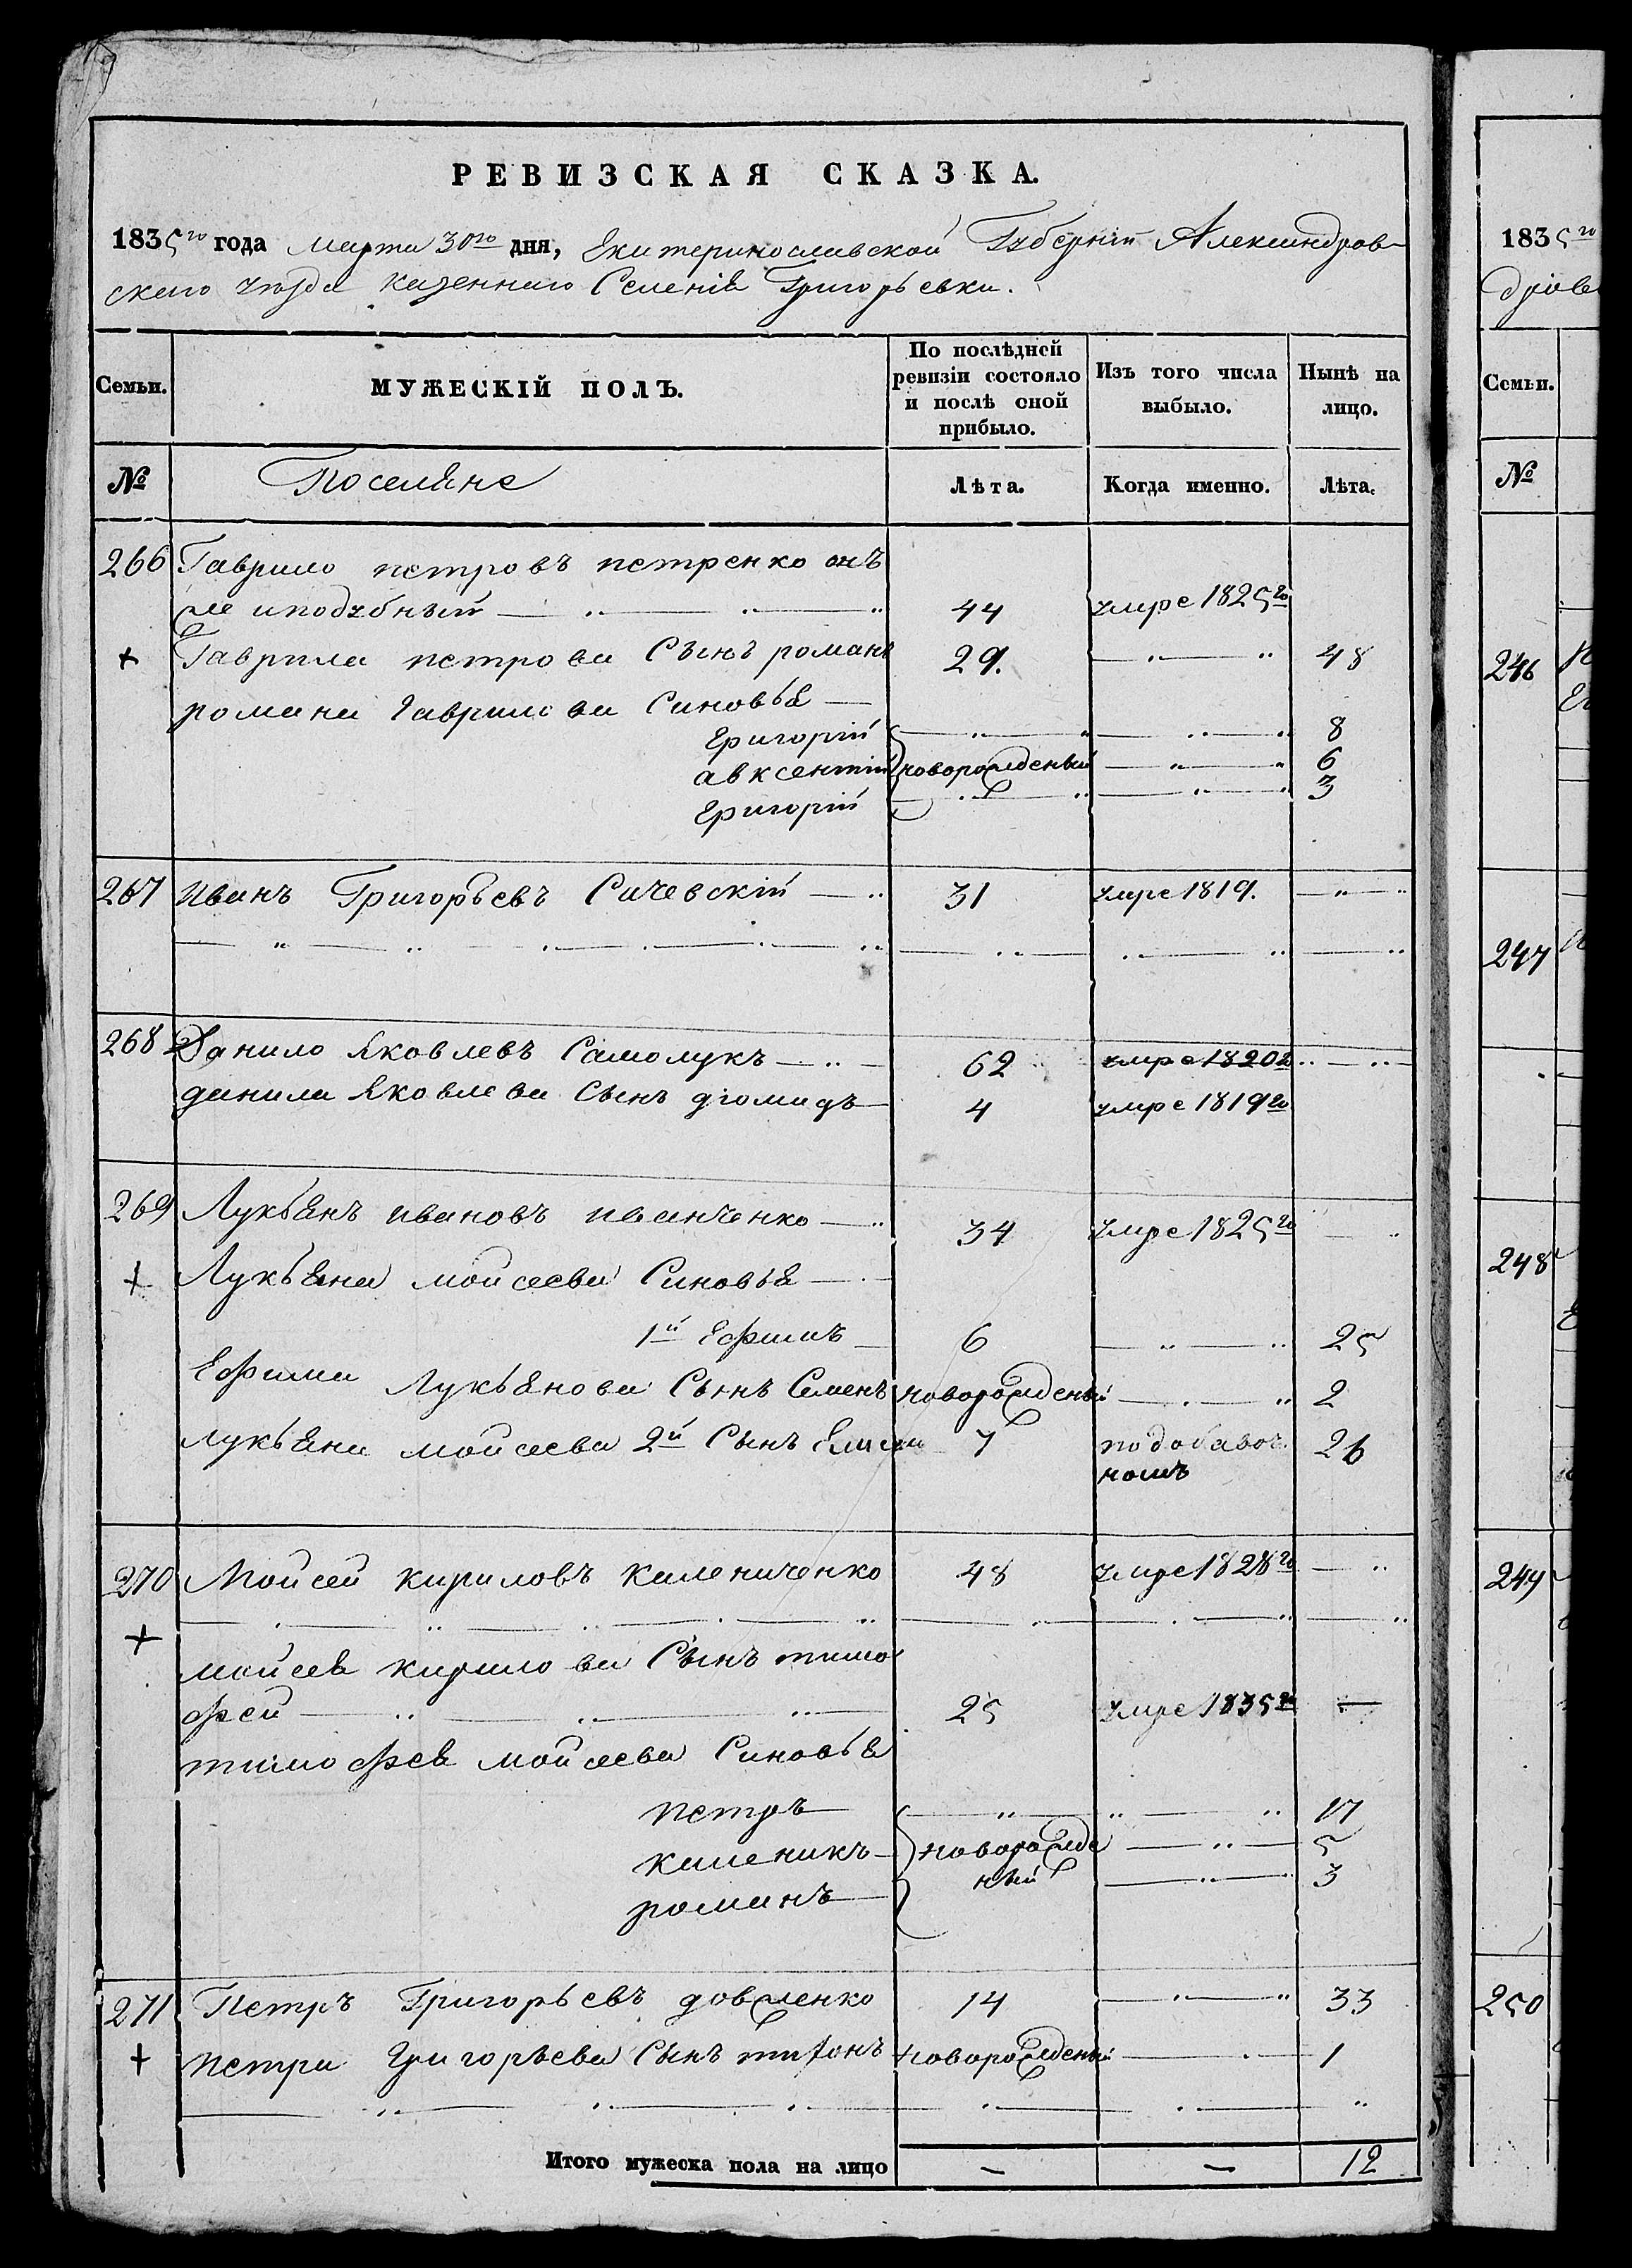 РЕВИЗСКАЯ СКАЗКА.
1835го года марта 30го дня, Екатеринославской Губерніи Александров-
скаго уезда казеннаго Селенія Григорьевки.
Семьи. МУЖЕСКІЙ ПОЛЪ. По послѣдней ревизіи состояло и послѣ оной прибыло. Изъ того числа выбыло. Нынѣ на лицо.
№ Поселяне Лѣта. Когда именно. Лѣта.
266 Гаврило петровъ петренко онъ
же иподубный 44 умре 1825го
+ Гаврила петрова Сынъ романъ 29. 48
романа Гаврилова Синовья
Григорій 8
авксентій новорожденый 6
Григорій 3
267 Иванъ Григорьевъ Сичевскій 31 умре 1819.
268 Данило Яковлевъ Самолукъ 62 умре 1820го
данила Яковлева Сынъ діомидъ 4 умре 1819го
269 Лукьянъ ивановъ иванченко 34 умре 1825го
+ Лукьяна моисеева Синовья
1й Ефимъ 6 25
Ефима Лукьянова Сынъ Семенъ новорожденый 2
лукьяна моисеева 2й Сынъ 7 подобавоч
номъ 26
270 Мойсей кириловъ калениченко 48 умре 1828го
+
мойсея кирилова Сынъ тимо
фей 25 умре 1835го
тимофея мойсеева Синовья
петръ 17
каленикъ новорожде 5
романъ ный 3
271 Петръ Григорьевъ довженко 14 33
+ петра Григорьева Сынъ тихонъ новорожденый 1
Итого мужеска пола на лицо 12
1835го
Семьи.
№
246
247
248
249
250